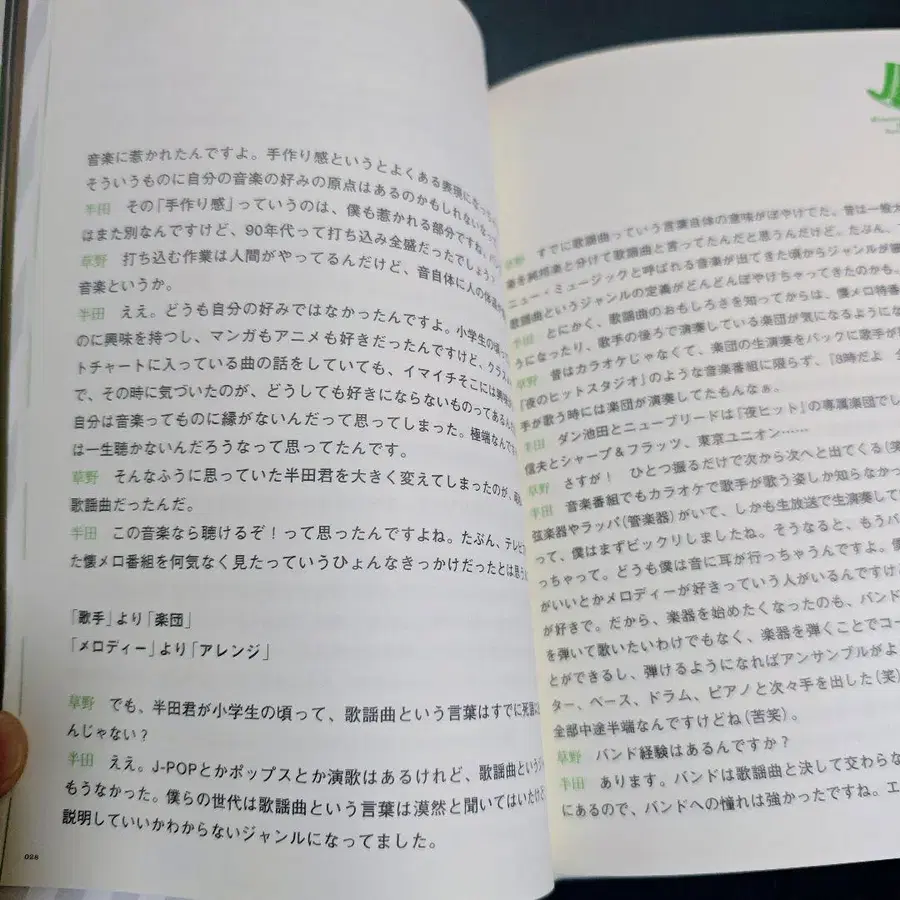 音楽に惹かれたんですよ。手作り感というとよくある表現になっちゃ
そういうものに自分の音楽の好みの原点はあるのかもしれないなって
半田 その「手作り感」っていうのは、僕も惹かれる部分ですね。
はまた別なんですけど、90年代って打ち込み全盛だったでしょう
草野 打ち込む作業は人間がやってるんだけど、音自体に人の体温が
音楽というか。
半田 ええ。どうも自分の好みではなかったんですよ。小学生の頃っ
のに興味を持つし、マンガもアニメも好きだったんですけど、クラス
トチャートに入っている曲の話をしていても、イマイチそこには興味が
で、その時に気づいたのが、どうしても好きにならないものってあるん
自分は音楽ってものに縁がないんだって思ってしまった。極端なんです
は一生聴かないんだろうなって思ってたんです。
草野 そんなふうに思っていた半田君を大きく変えてしまったのが、
歌謡曲だったんだ。
半田 この音楽なら聴けるぞ！って思ったんですよね。たぶん、テレビ
た懐メロ番組を何気なく見たっていうひょんなきっかけだったとは思う
「歌手」より「楽団」
「メロディー」より「アレンジ」
草野 でも、半田君が小学生の頃って、歌謡曲という言葉はすでに死語
んじゃない？
半田 ええ。J-POPとかポップスとか演歌はあるけれど、歌謡曲という
もうなかった。僕らの世代は歌謡曲という言葉は漠然と聞いてはいたけど
説明していいかわからないジャンルになってました。
028
草野 すでに歌謡曲っていう言葉自体の意味がぼやけてた。昔は一般大
楽を純邦楽と分けて歌謡曲と言ってたんだと思うんだけど。たぶん、
ニュー・ミュージックと呼ばれる音楽が出てきた頃からジャンルが
歌謡曲というジャンルの定義がどんどんぼやけちゃってきたのかも。
半田 とにかく、歌謡曲のおもしろさを知ってからは、懐メロ特番
うになったり、歌手の後ろで演奏している楽団が気になるようにな
草野 昔はカラオケじゃなくて、楽団の生演奏をバックに歌手が
「夜のヒットスタジオ」のような音楽番組に限らず、「8時だよ 全
手が歌う時には楽団が演奏してたもんなぁ。
半田 ダン池田とニューブリードは『夜ヒット』の専属楽団でし
信夫とシャープ＆フラッツ、東京ユニオン……
草野 さすが！ ひとつ振るだけで次から次へと出てくる（笑
半田 音楽番組でもカラオケで歌手が歌う姿しか知らなかっ
弦楽器やラッパ（管楽器）がいて、しかも生放送で生演奏して
って、僕はまずビックリしましたね。そうなると、もうバ
っちゃって。どうも僕は音に耳が行っちゃうんですよ。
がいいとかメロディーが好きっていう人がいるんですけど
が好きで。だから、楽器を始めたくなったのも、バンド
を弾いて歌いたいわけでもなく、楽器を弾くことでコー
とができるし、弾けるようになればアンサンブルがよ
ター、ベース、ドラム、ピアノと次々手を出した（笑）
全部中途半端なんですけどね（苦笑）。
草野 バンド経験はあるんですか？
半田 あります。バンドは歌謡曲と決して交わらな
にあるので、バンドへの憧れは強かったですね。エ